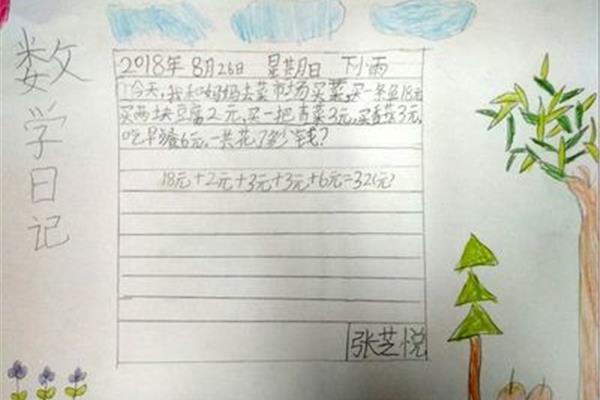 数学日记
2018年 8月26日 星期日 下小雨
今天,我和妈妈去菜市场买菜,买一条鱼18元
买两块豆腐2元,买一把青菜3元,买青菜3元,
吃早餐6元,一共花了多少钱?
18元+2元+3元+3元+6元=32(元)
张芝悦